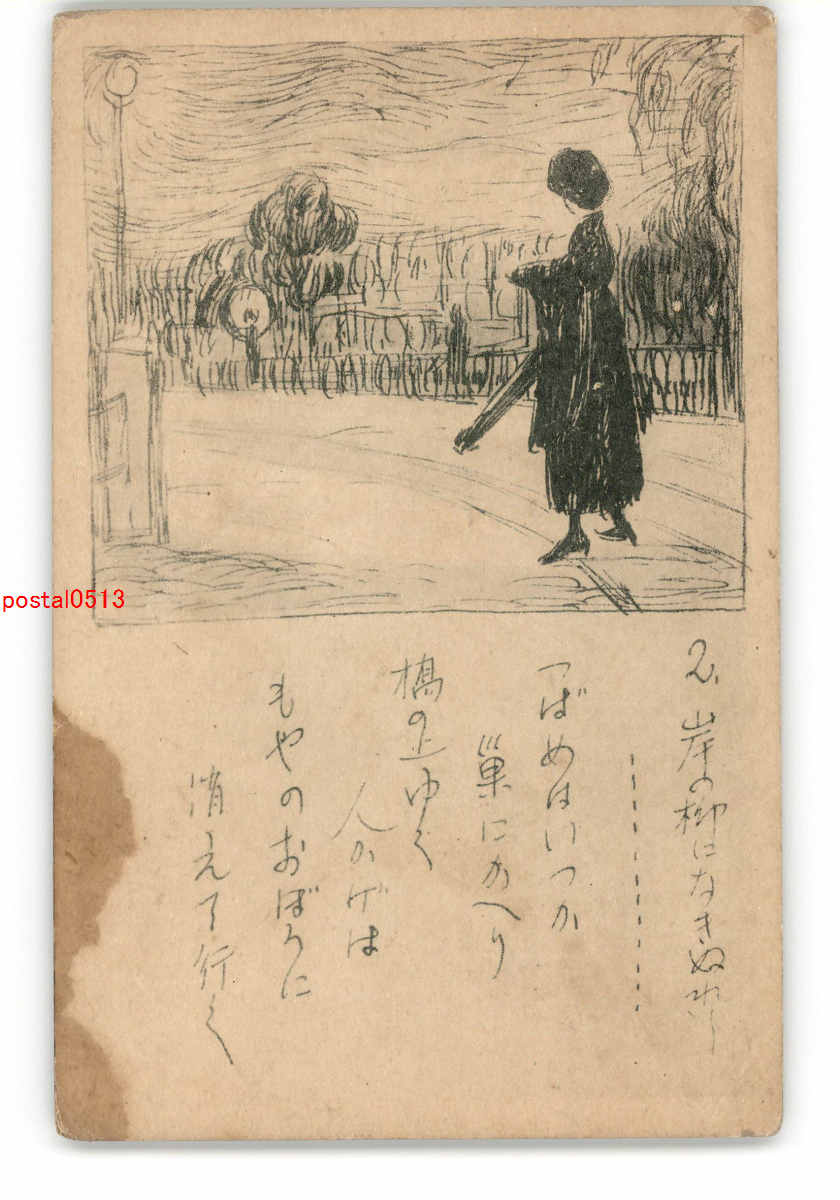 2. 岸の柳になきぬれし
つばめはいつか
巣にかへり
橋の上ゆく
人かげは
もやのおぼろに
消えて行く
postal0513